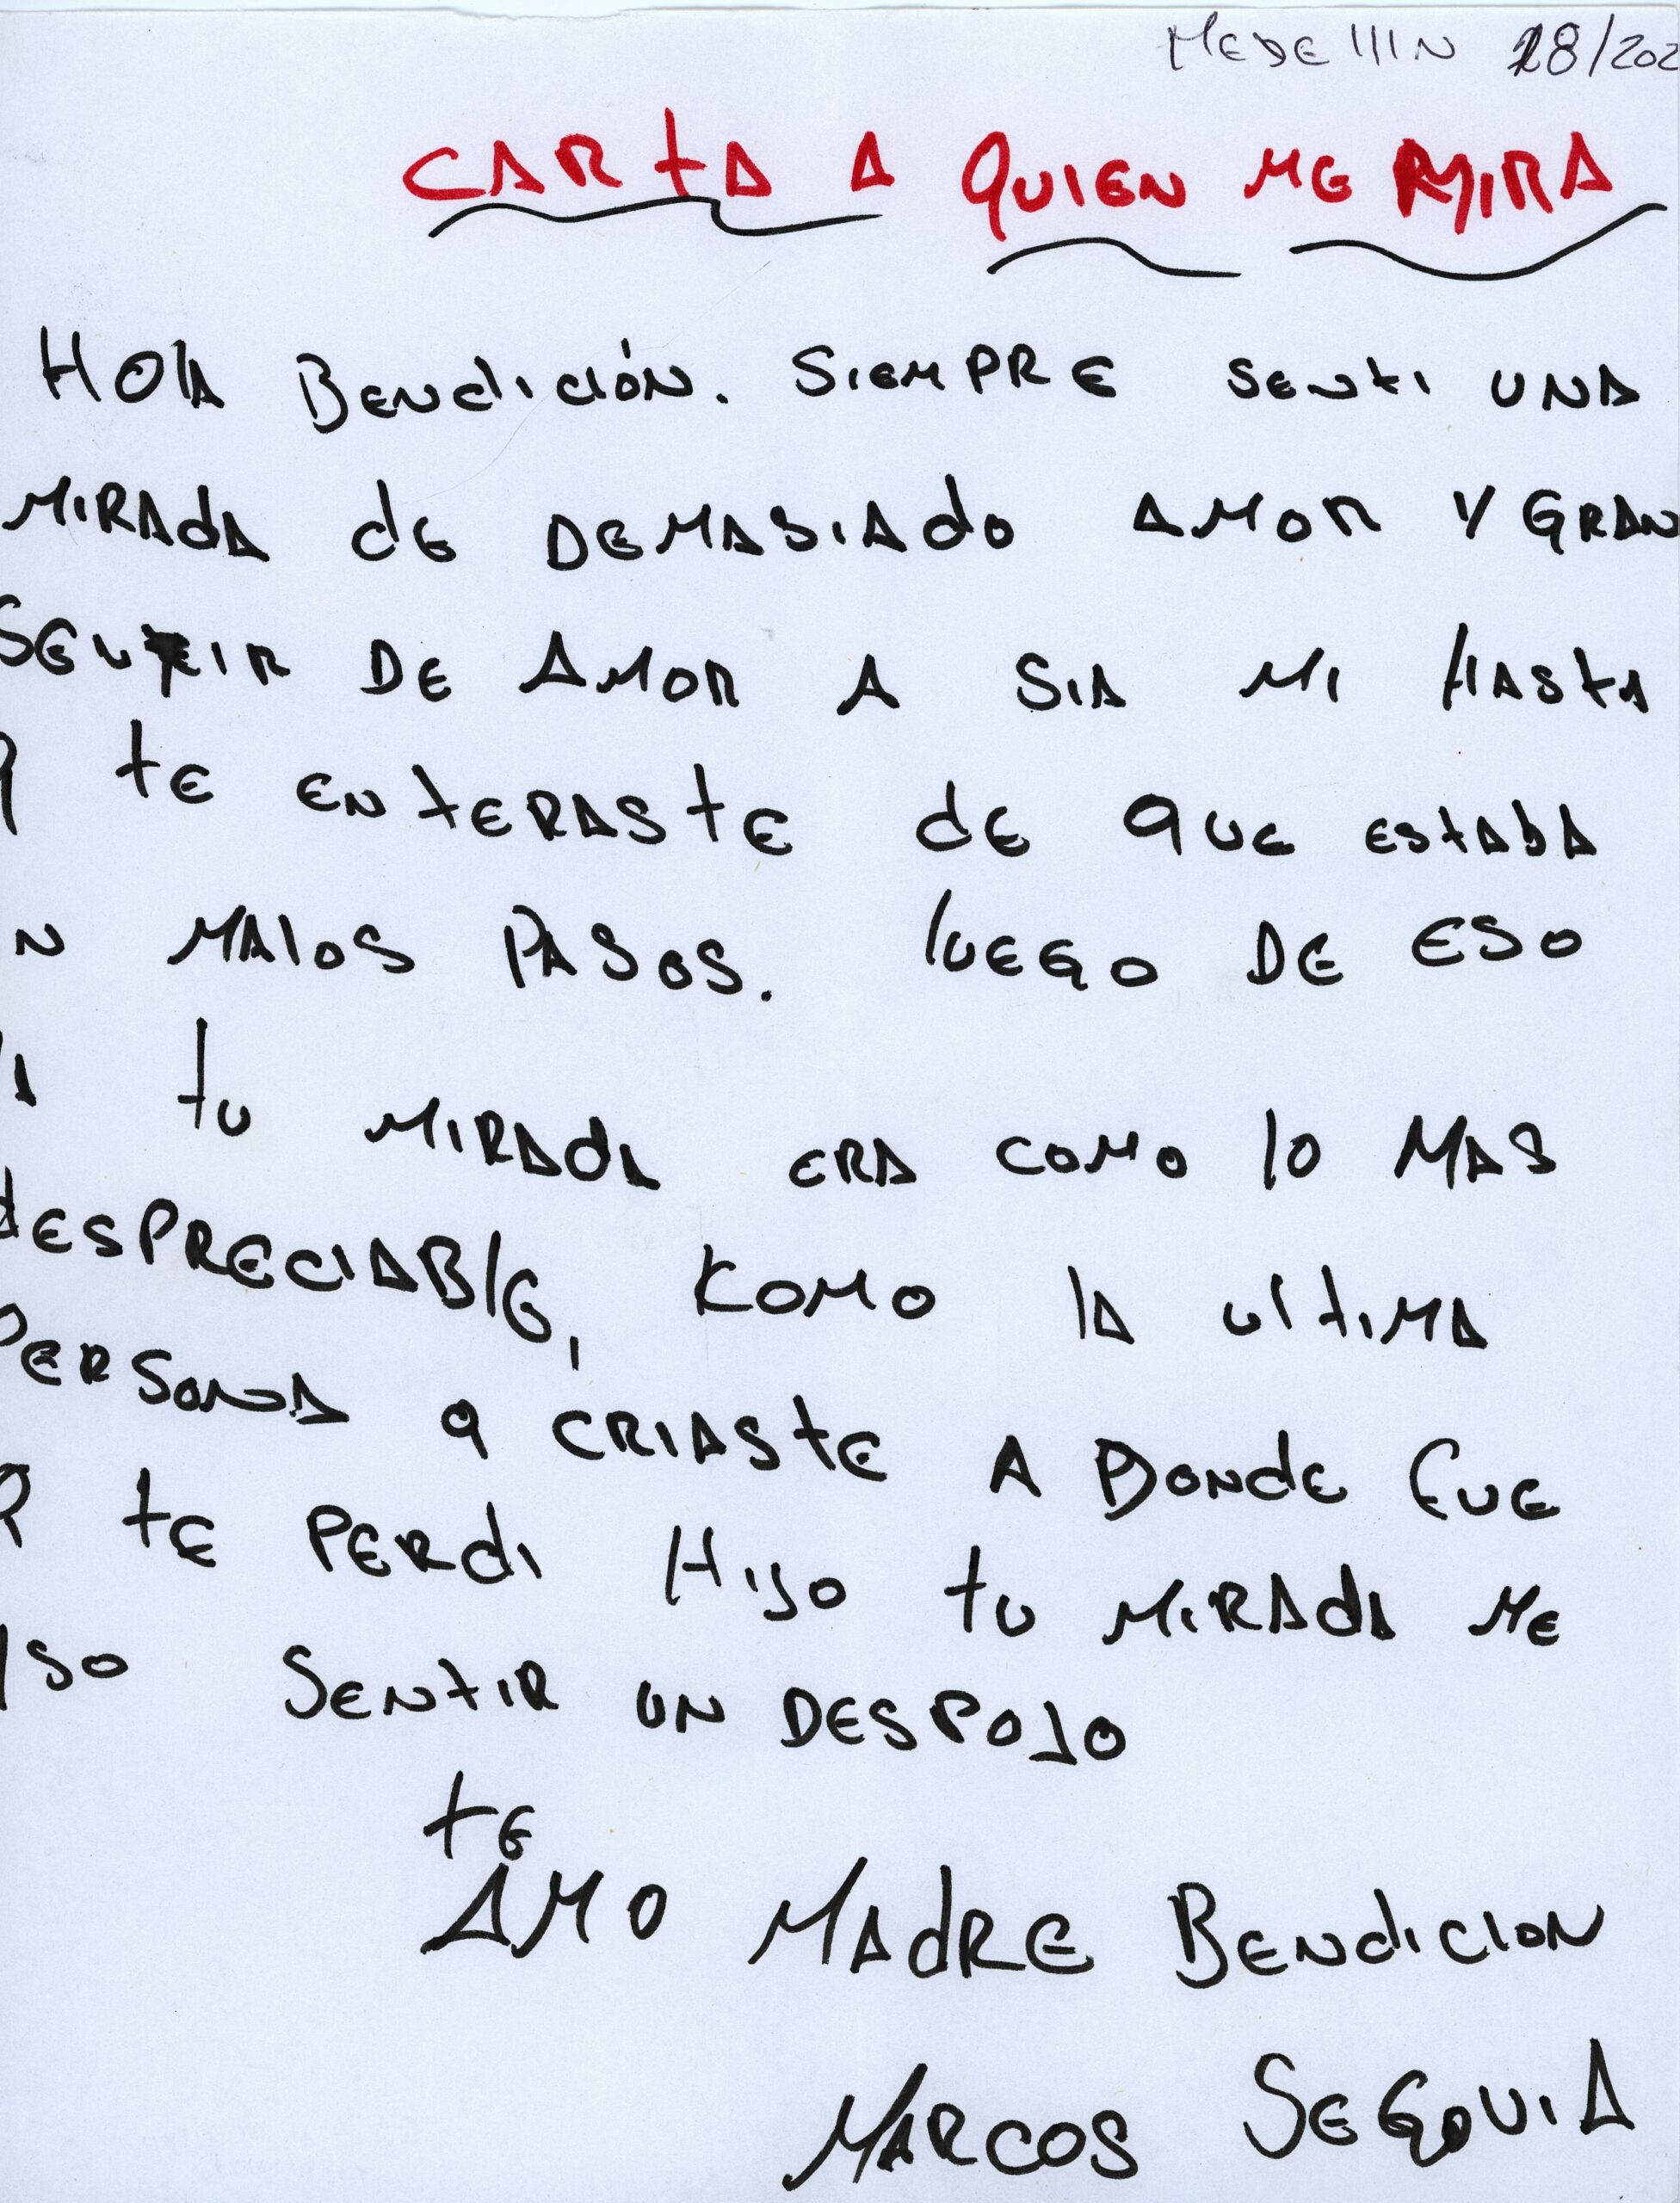 MEDEllIN 28/202
CARTA A QUIEN ME MIRA
HOlA BENdICIÓN. SIEMPRE SENTI UNA
MIRAdA dE DEMASIAdO AMOR Y GRAN
SENTIR DE AMOR A SIA MI HASTA
Q TE ENTERASTE dE QUE ESTABA
N MAlOS PASOS. lUEGO DE ESO
TU MIRAdA ERA COMO lO MAS
dESPRECIABlE, KOMO lA UlTIMA
PERSONA q CRIASTE A DONdE FUE
Q TE PERdI HIJO TU MIRAdA ME
ISO SENTIR UN DESPOJO
TE
AMO MAdRE BENdICION
MARCOS SEGOVIA